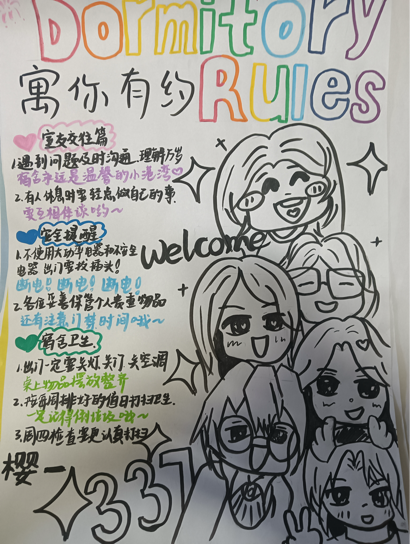 Dormitory
寓你有约 Rules
室友交往篇
1.遇到问题及时沟通,理解万岁
宿舍永远是温馨的小港湾♡
2.有人休息时要轻点做自己的事
要互相体谅哟~
welcome
安全提醒
1.不使用大功率电器和不安全
电器 出门要拔插头!
断电!断电!断电!
2.各位妥善保管个人贵重物品
还有注意门禁时间哦~
宿舍卫生
1.出门一定要关灯关门 关空调
桌上物品摆放整齐
2.按每周排好的值日打扫卫生
一定记得做值日哦~
3.周四检查要更认真打扫
樱一
337